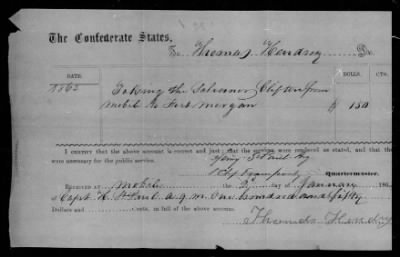 The Confederate States,
To Thomas Hendry Dr.
DATE. DOLLS. CTS.
1862 Towing the Schooner Clifton from
Mobile to Fort Morgan $ 150
I CERTIFY that the above account is correct and just; that the services were rendered as stated, and that they
were necessary for the public service.
Henry St Paul
Quartermaster.
RECEIVED at Mobile the day of January 186
of Capt. H. St Paul a.q.m. One hundred and fifty
Dollars and Cents, in full of the above account.
Thomas Hendry